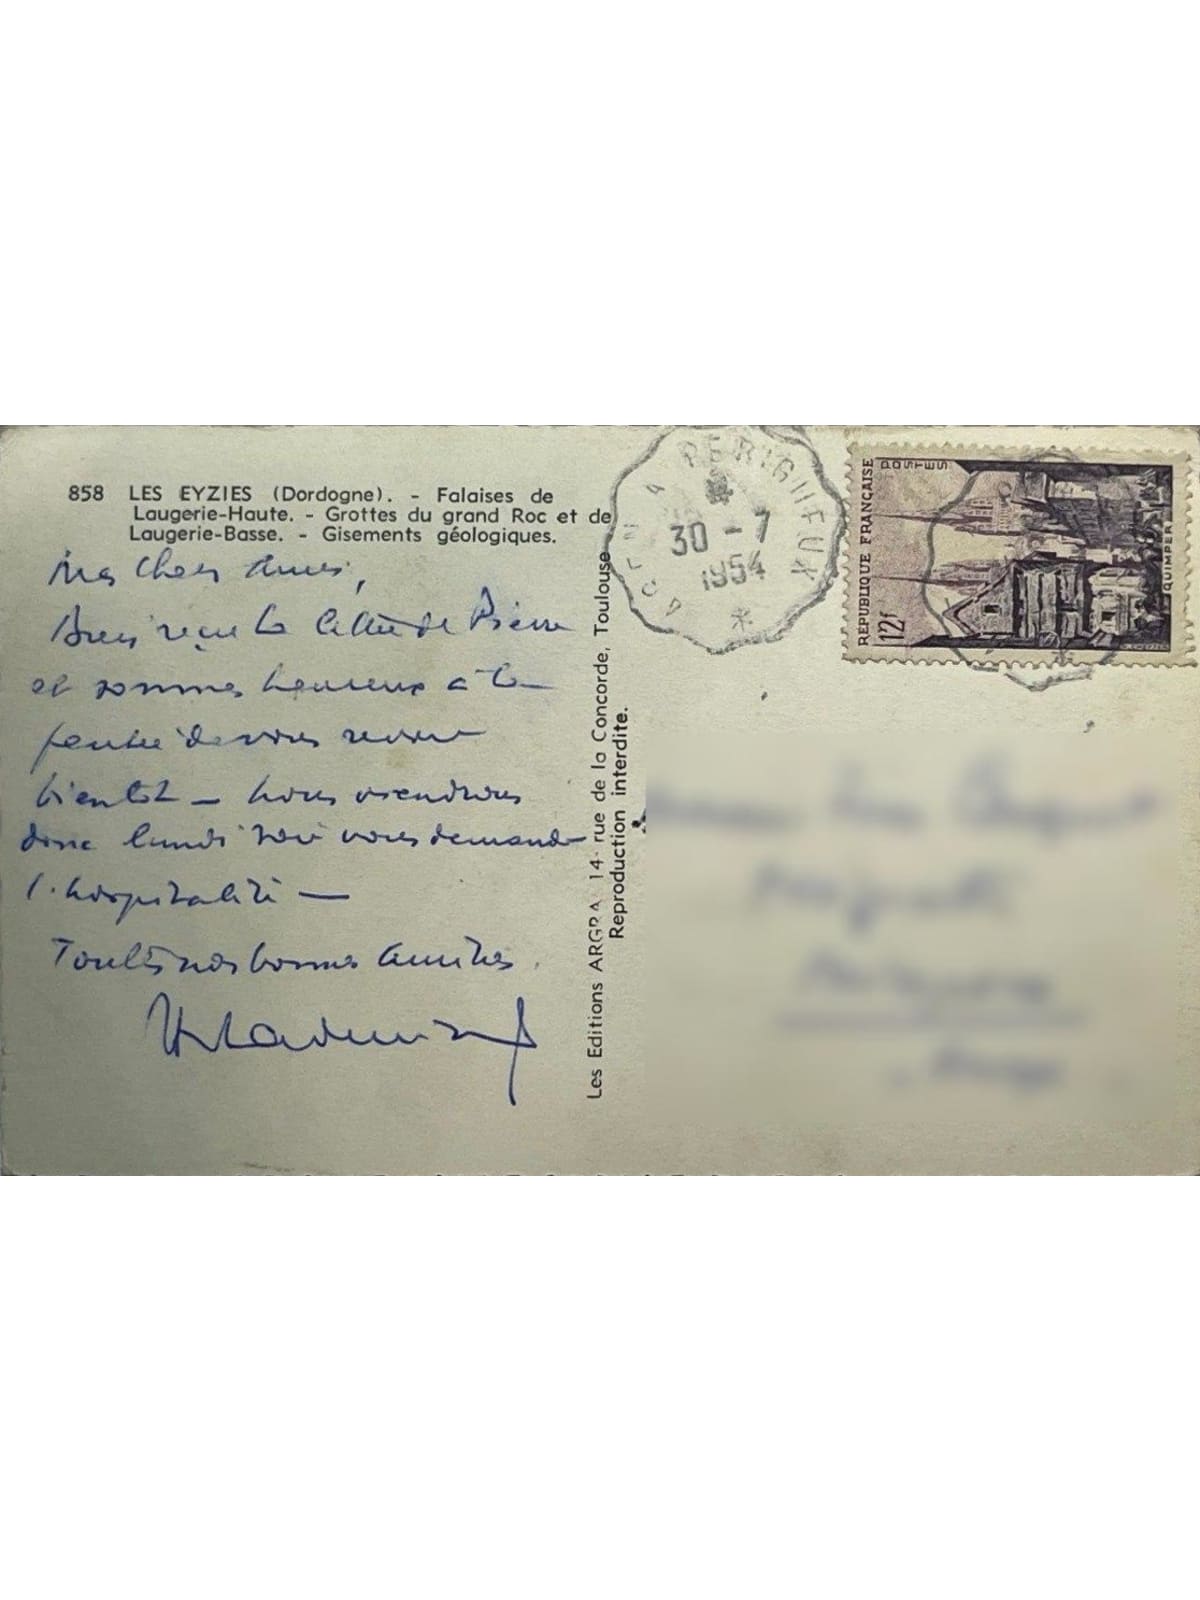 858 LES EYZIES (Dordogne). - Falaises de
Laugerie-Haute. - Grottes du grand Roc et de
Laugerie-Basse. - Gisements géologiques.
Mes chers amis,
reçu la lettre de Pierre
et sommes heureux à la
pensée de vous revoir
bientôt — nous viendrons
donc lundi soir vous demander
l'hospitalité —
Toutes nos bonnes amitiés.
Les Editions ARGRA 14, rue de la Concorde, Toulouse
Reproduction interdite.
AGEN A PERIGUEUX
30 - 7
1954
REPUBLIQUE FRANÇAISE
POSTES
12f
QUIMPER